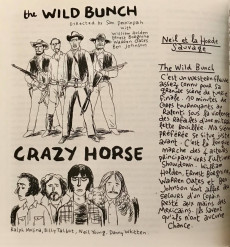 the WILD BUNCH
directed by Sam Peckinpah
with
William Holden
Ernest Borgnine
Warren Oates
Ben Johnson
CRAZY HORSE
Ralph Molina, Billy Talbot, Neil Young, Danny Whitten.
Neil et la Horde
Sauvage
The Wild Bunch
C'est un western
assez connu pour sa
grande scène de
finale. 10 minutes de
corps
Ralentis sous la
des rafales d'une
préférée se situe
avant. C'est la longue
marche des 4
principaux vers l'ultime
Showdown. William
Holden, Ernest Borgnine,
Warren Oates et Ben
Johnson vont aller au
secours d'un
aux mains des
Mexicains. Ils savent
qu'ils n'ont aucune
Chance.